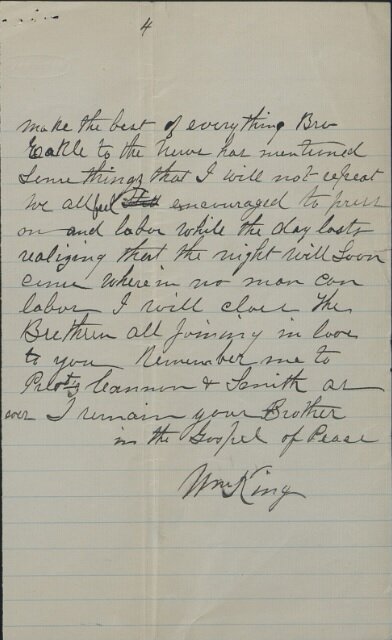 4
make the best of everything Bro
Eakle to the News has mentioned
some things that I will not repeat
we all feel encouraged to press
on and labor while the day lasts
realizing that the night will soon
come wherein no man can
labor I will close the
Brethren all Joining in love
to you Remember me to
Cannon & Smith as
ever I remain your Brother
in the Gospel of Peace
Wm King